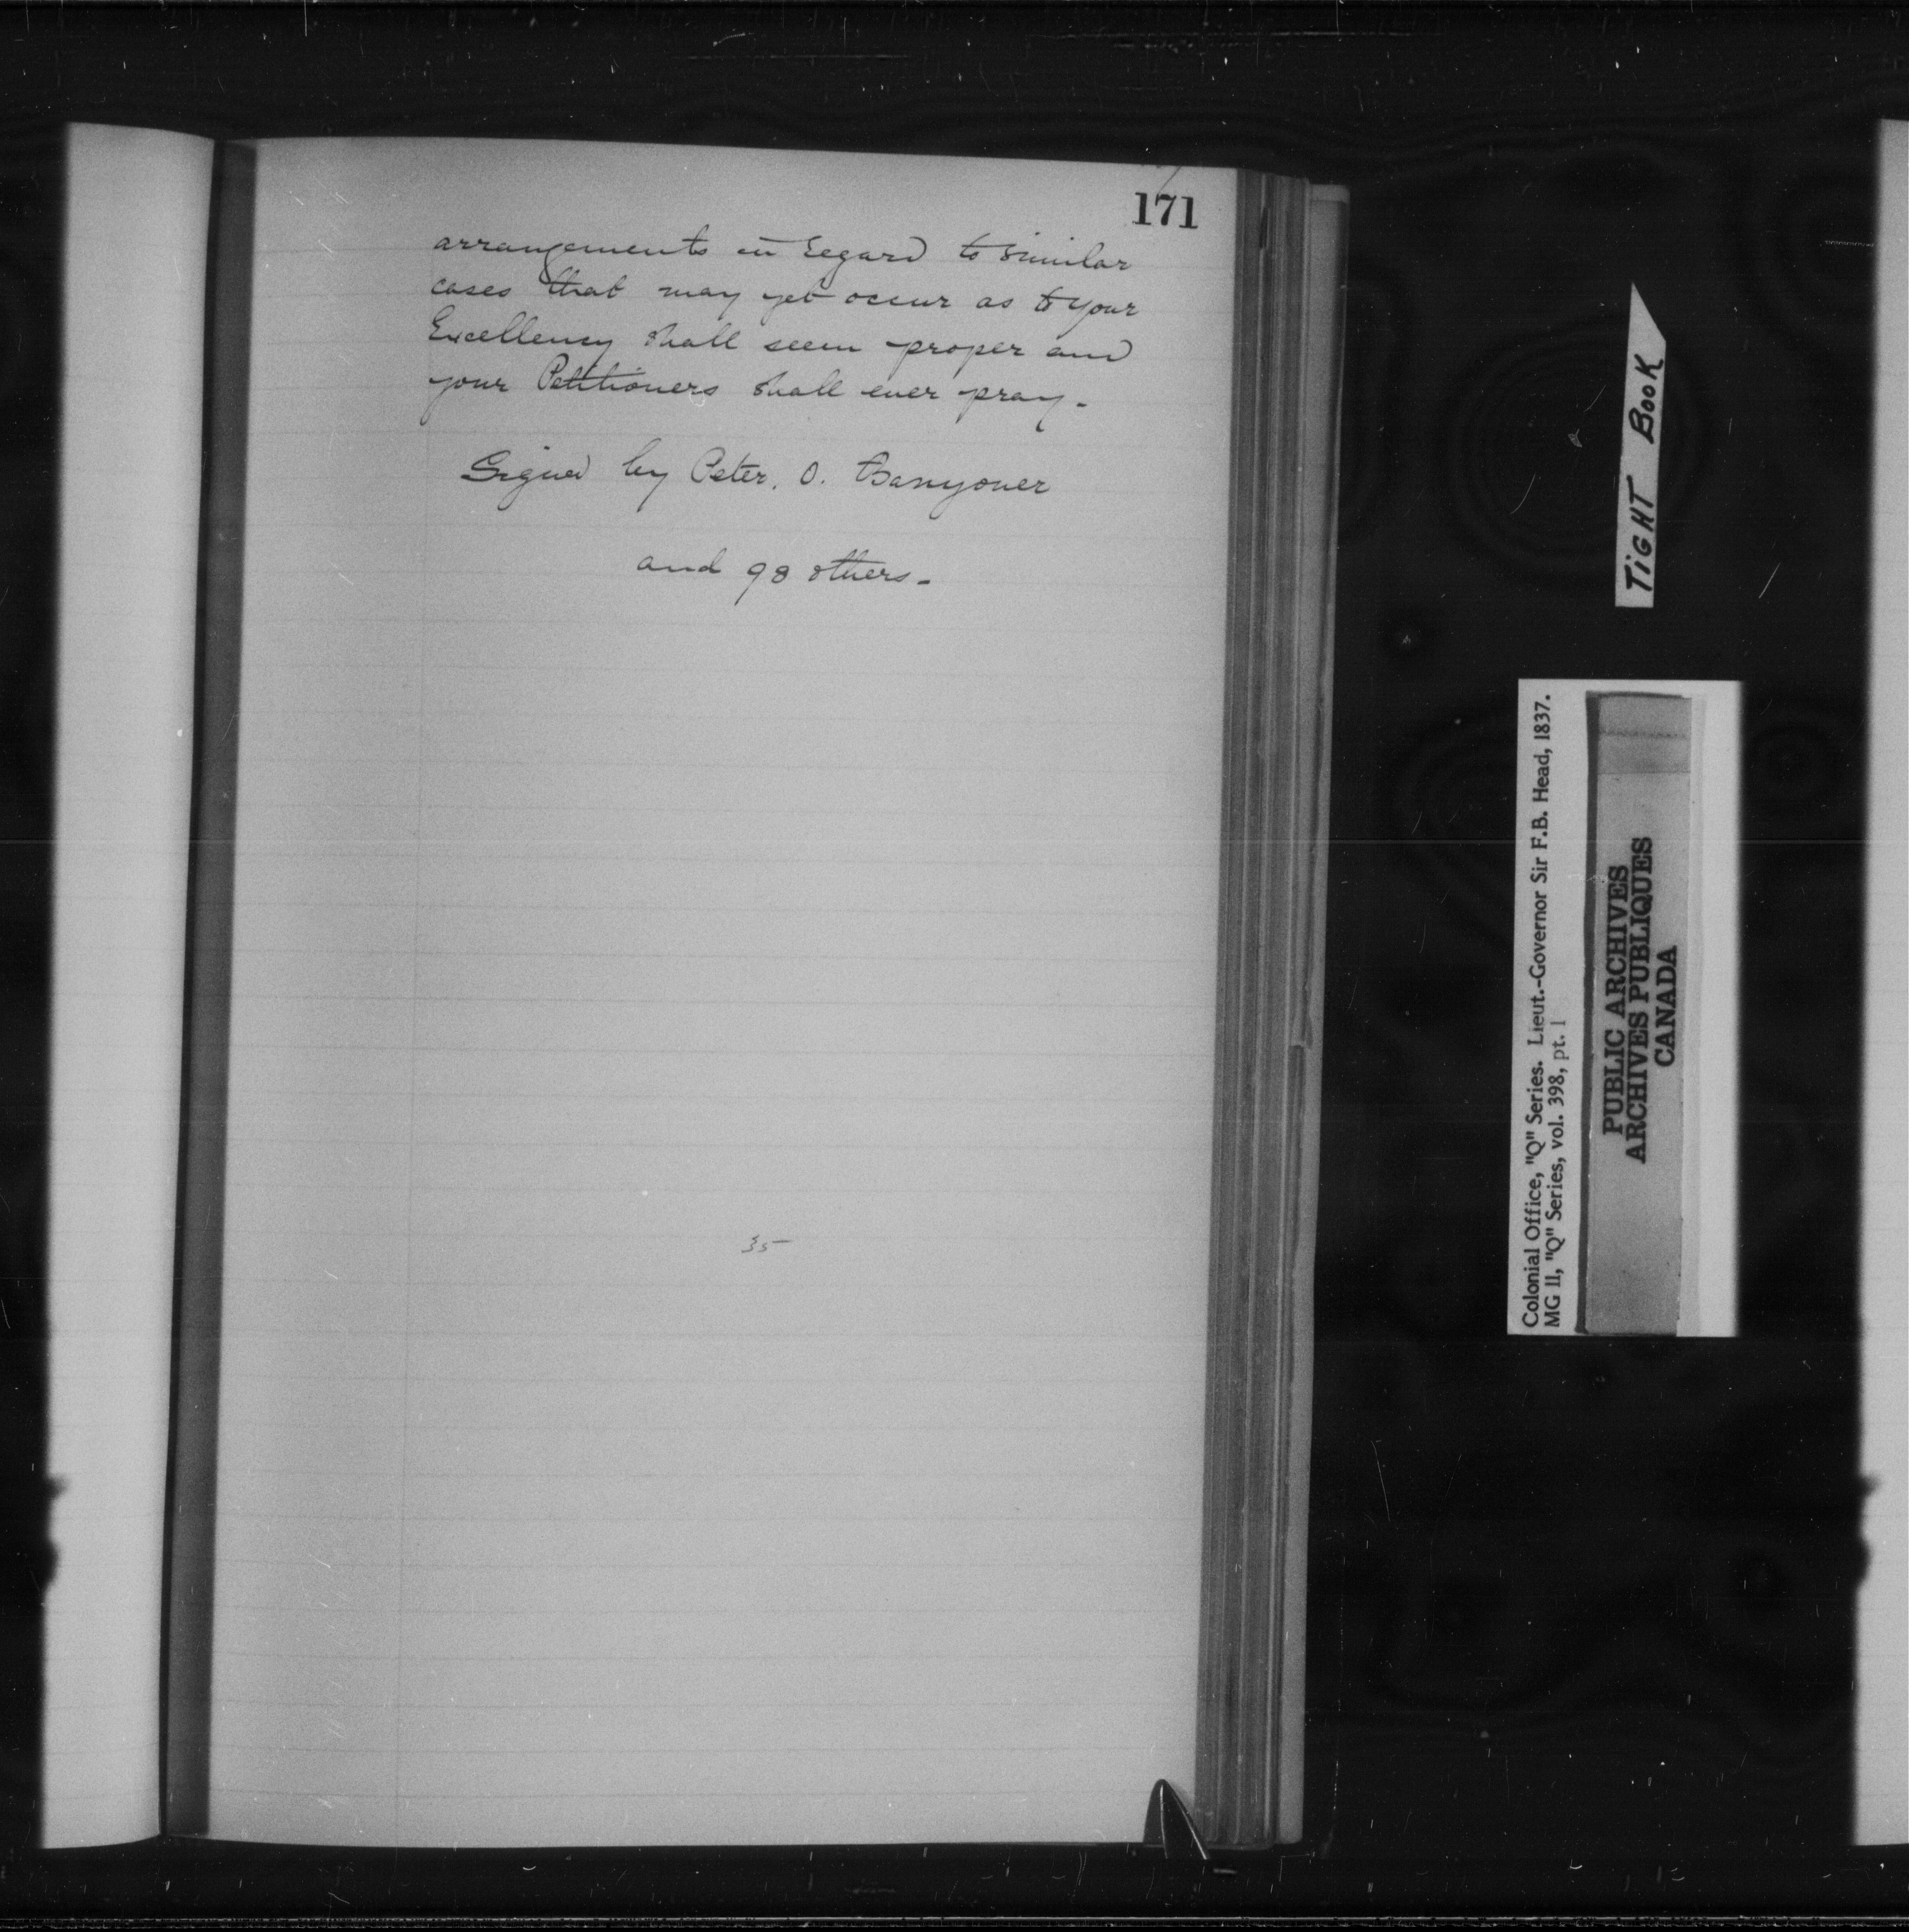 171
arrangements in regard to similar
cases that may yet occur as to your
Excellency shall seem proper and
your Petitioners shall ever pray.
Signed by Peter. O. Banyoner
and 98 others.
35
TIGHT BOOK
Colonial Office, "Q" Series. Lieut.-Governor Sir F.B. Head, 1837.
MG 11, "Q" Series, vol. 398, pt. 1
PUBLIC ARCHIVES
ARCHIVES PUBLIQUES
CANADA